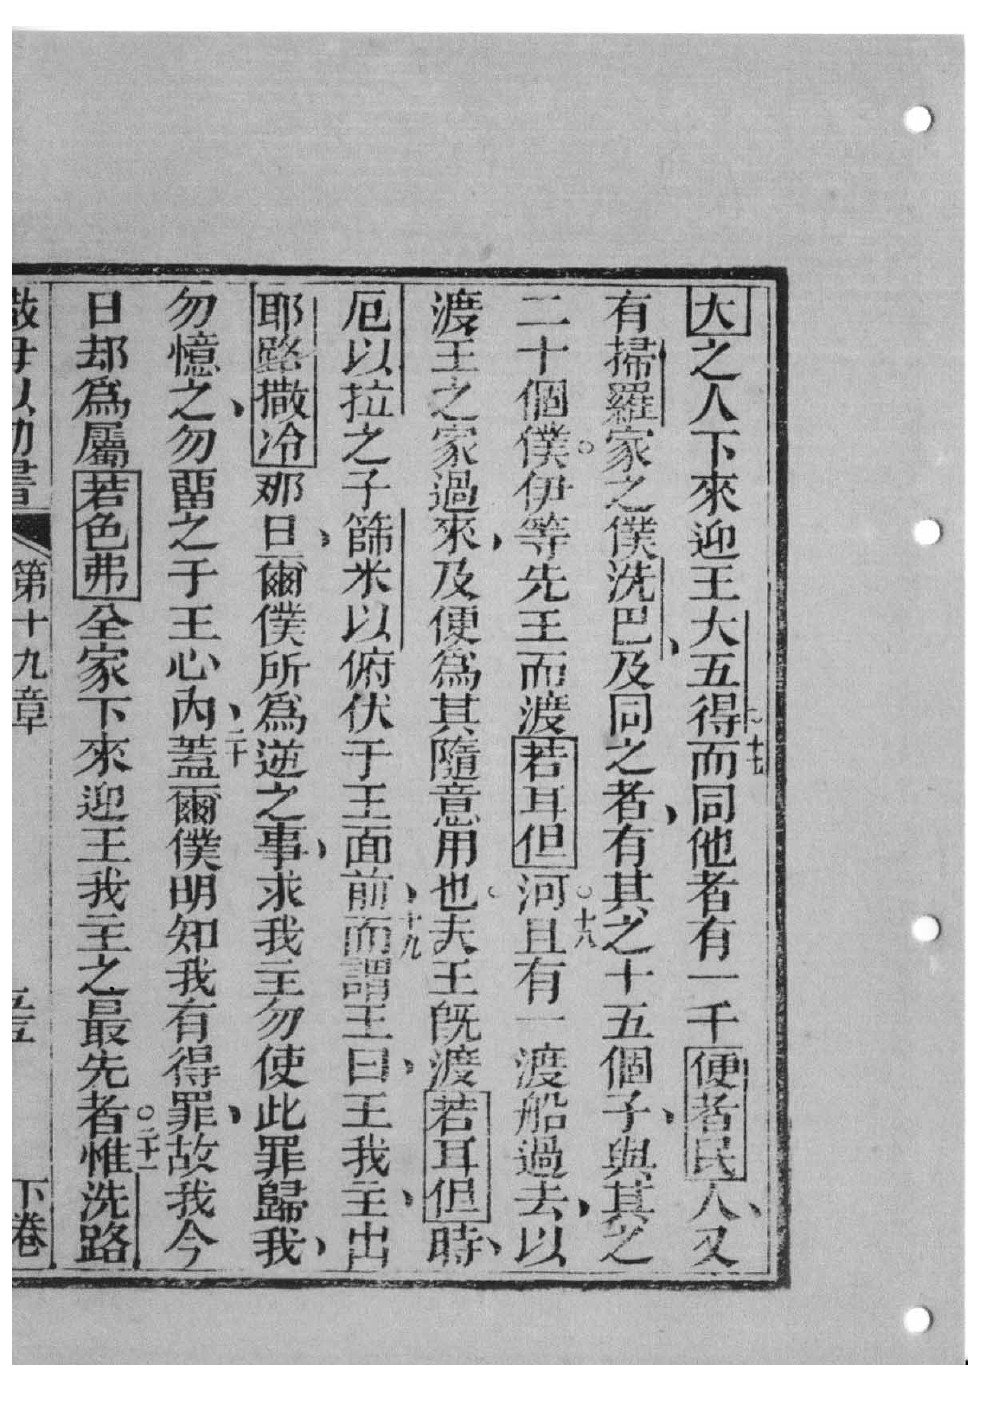 大之人下來迎王大五得。十七而同他者有一千便者民人、又
有掃羅家之僕洗巴、及同之者、有其之十五個子、與其之
二十個僕。伊等先王而渡若耳但河。十八且有一渡船過去、以
渡王之家過來、及便爲其隨意用也。夫王旣渡若耳但時、
厄以拉之子篩米以俯伏于王面前、十九而謂王曰、王我主、出
耶路撒冷那日、爾僕所爲逆之事、求我主勿使此罪歸我、
勿憶之、勿畱之于王心內、二十蓋爾僕明知我有得罪、故我今
日却爲屬若色弗全家下來迎王我主之最先者。二十一惟洗路
撒母以勒書 第十九章 五 下卷